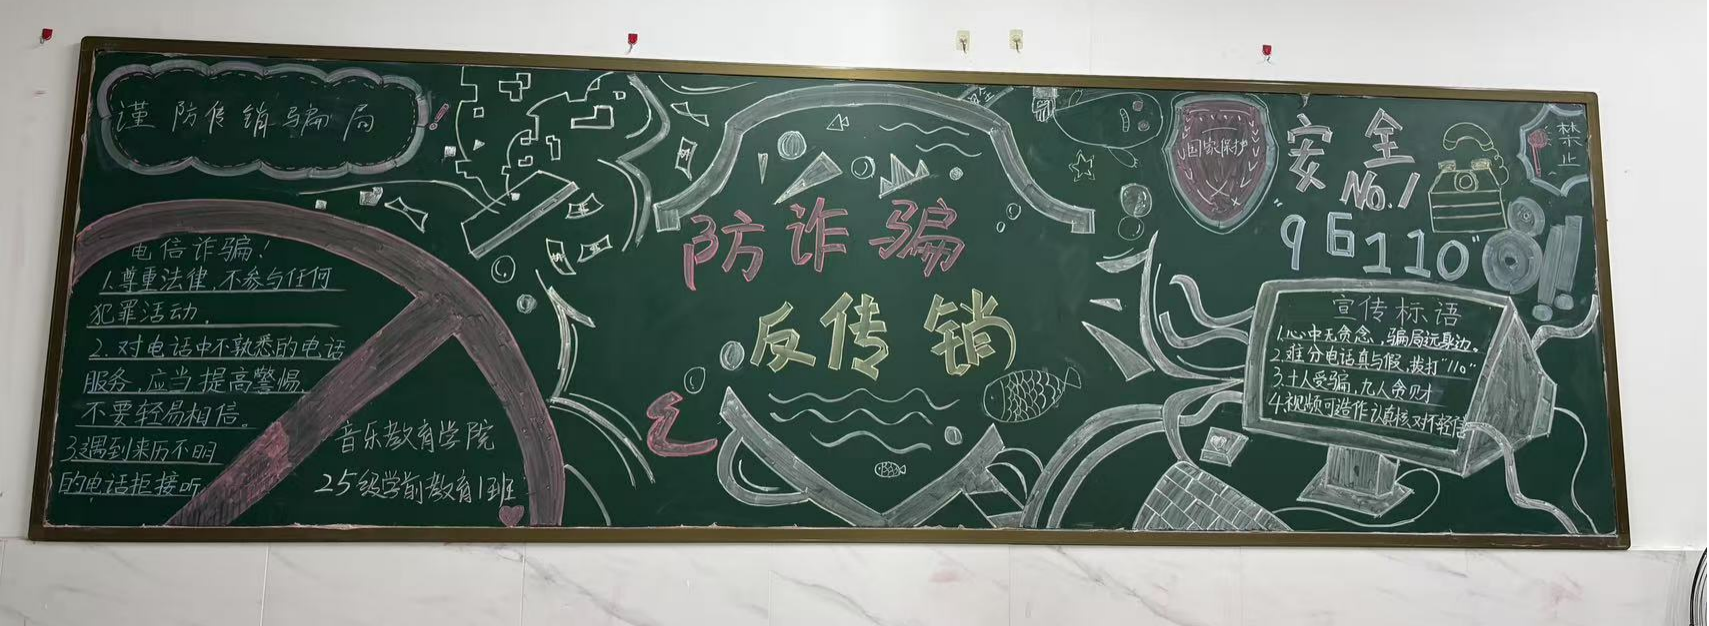 谨防传销骗局!
电信诈骗!
1.尊重法律,不参与任何
犯罪活动.
2.对电话中不熟悉的电话
服务,应当提高警惕
不要轻易相信。
3.遇到来历不明
的电话拒接听
音乐教育学院
25级学前教育1班
防诈骗
反传销
国家保护
安全
No.1
"96110"
禁止
宣传标语
1.心中无贪念,骗局远身边。
2.难分电话真与假,拨打"110"
3.十人受骗,九人贪财
4.视频可造作认真核对不轻信